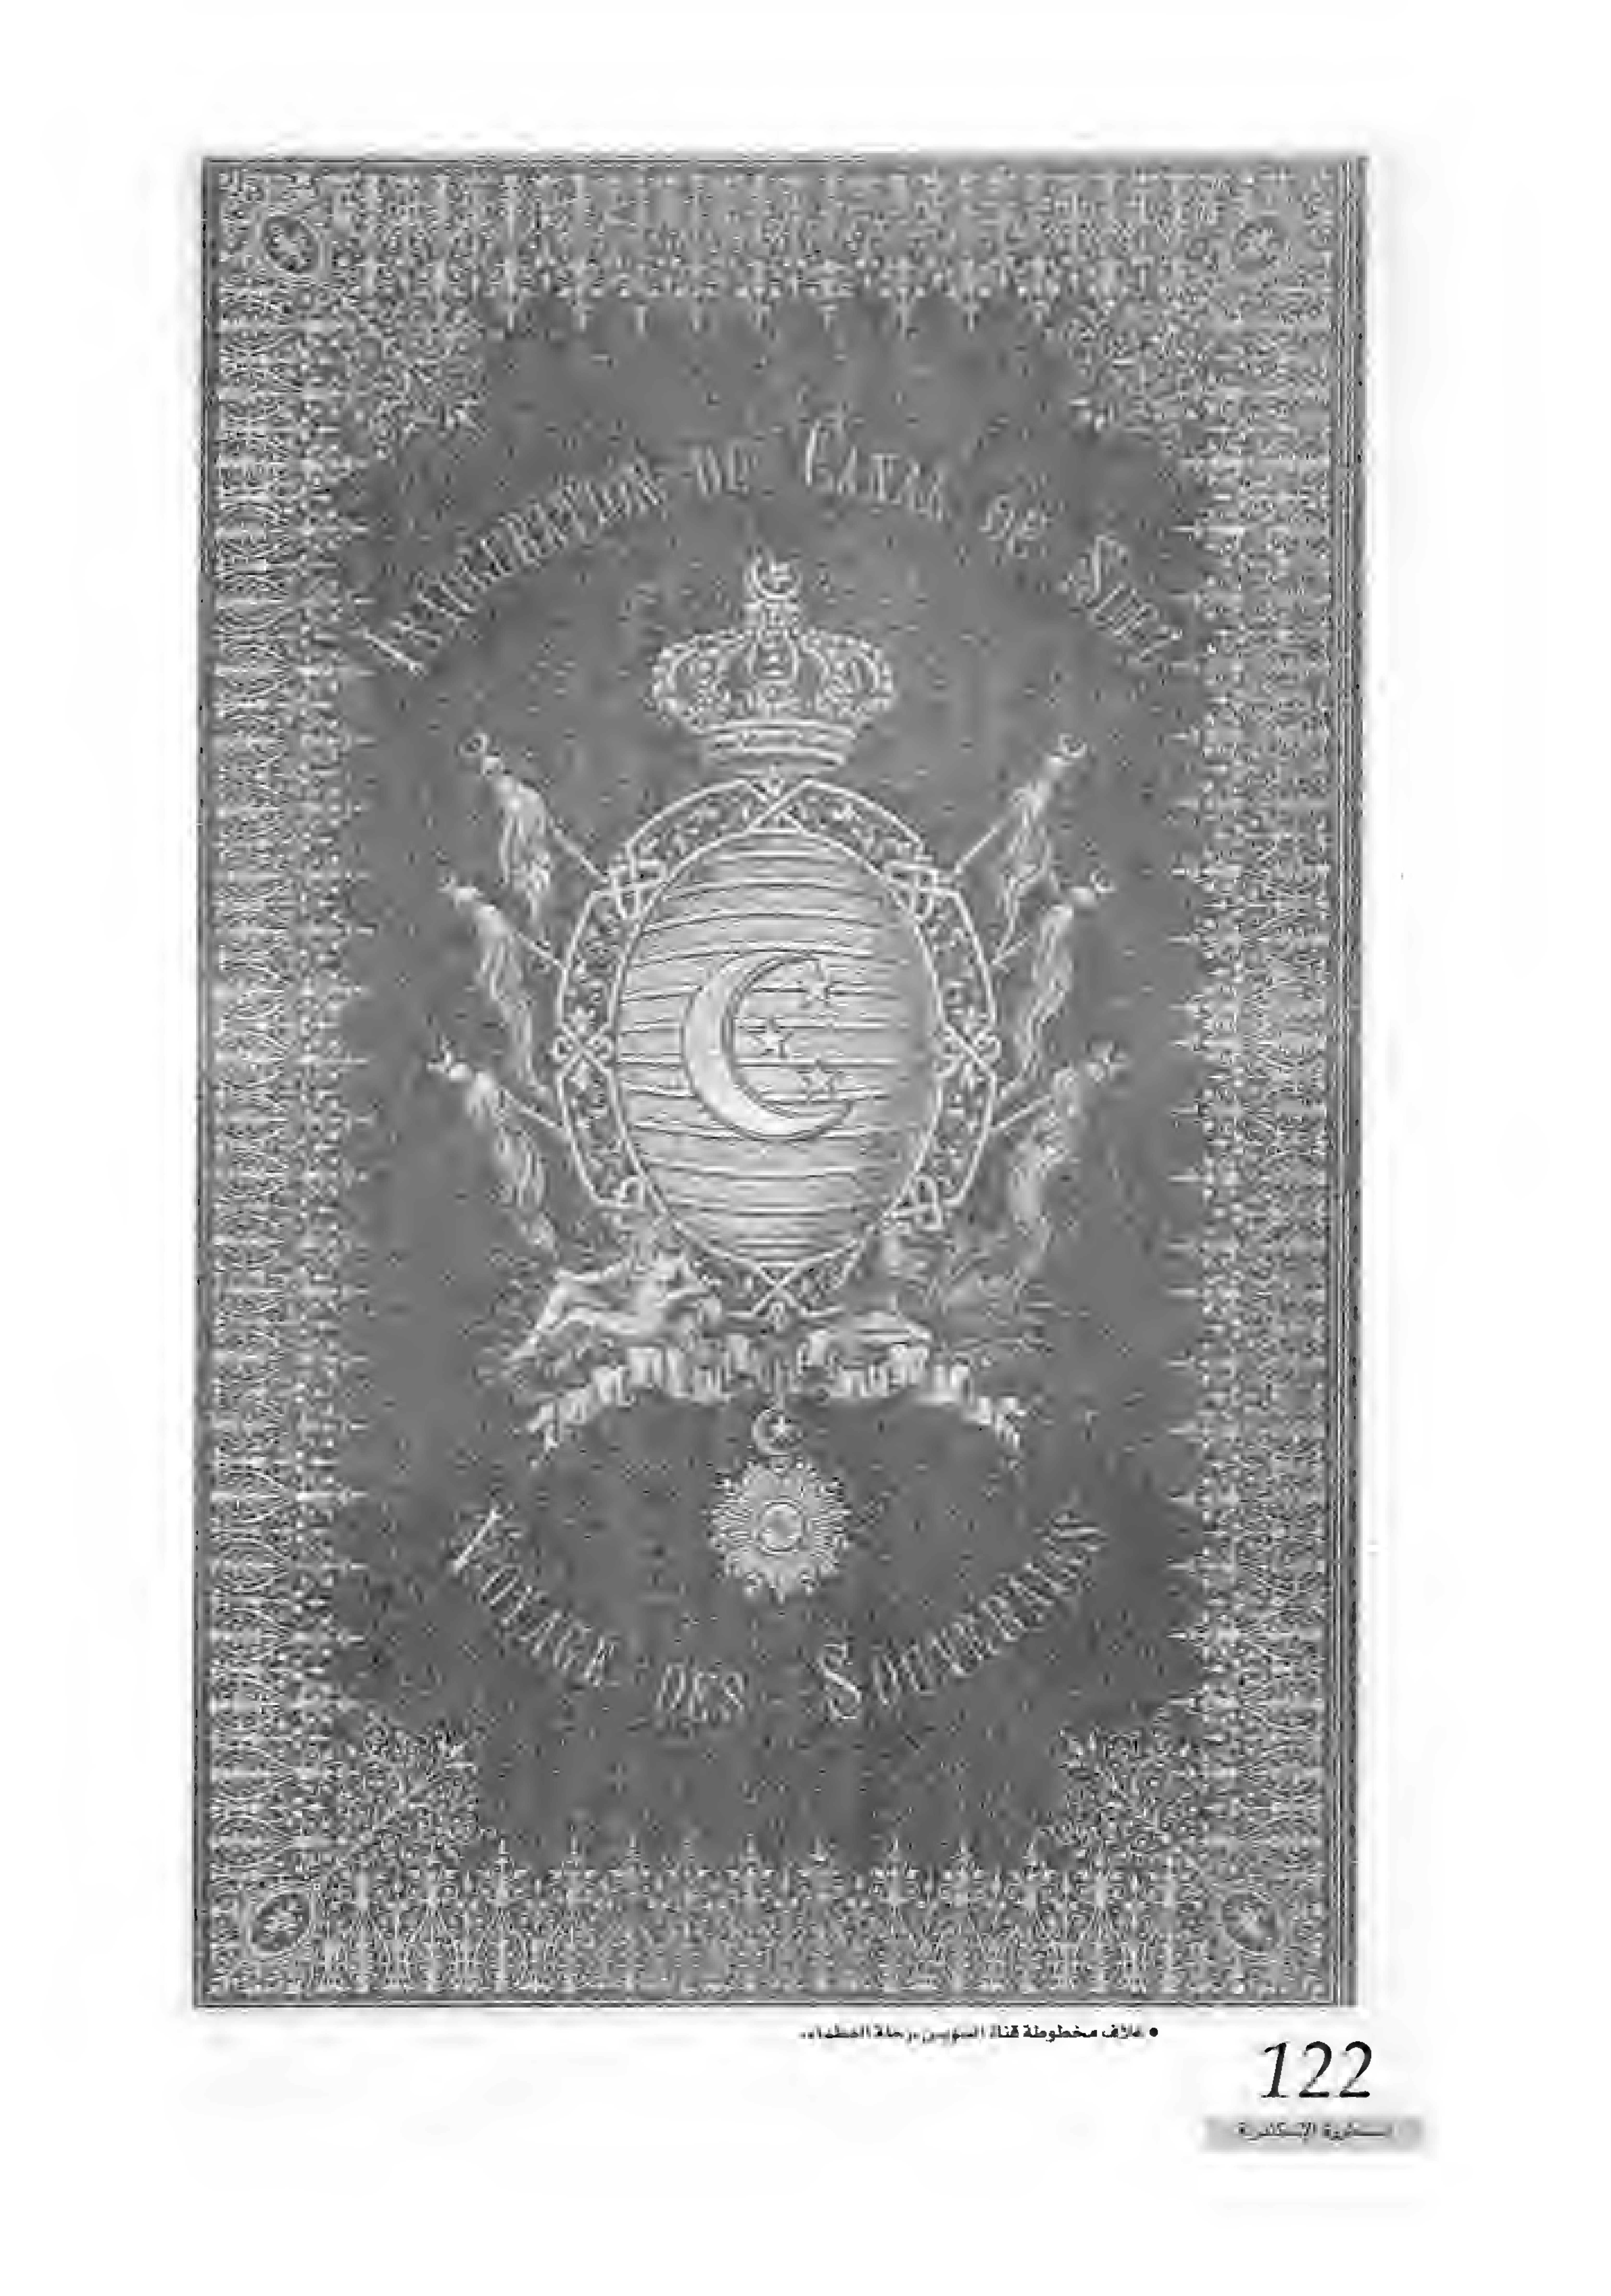 INAUGURATION DU CANAL DE SUEZ
VOYAGE DES SOUVERAINS
• غلاف مخطوطة قناة السويس «رحلة العظماء»
122
أسطورة الإسكندرية